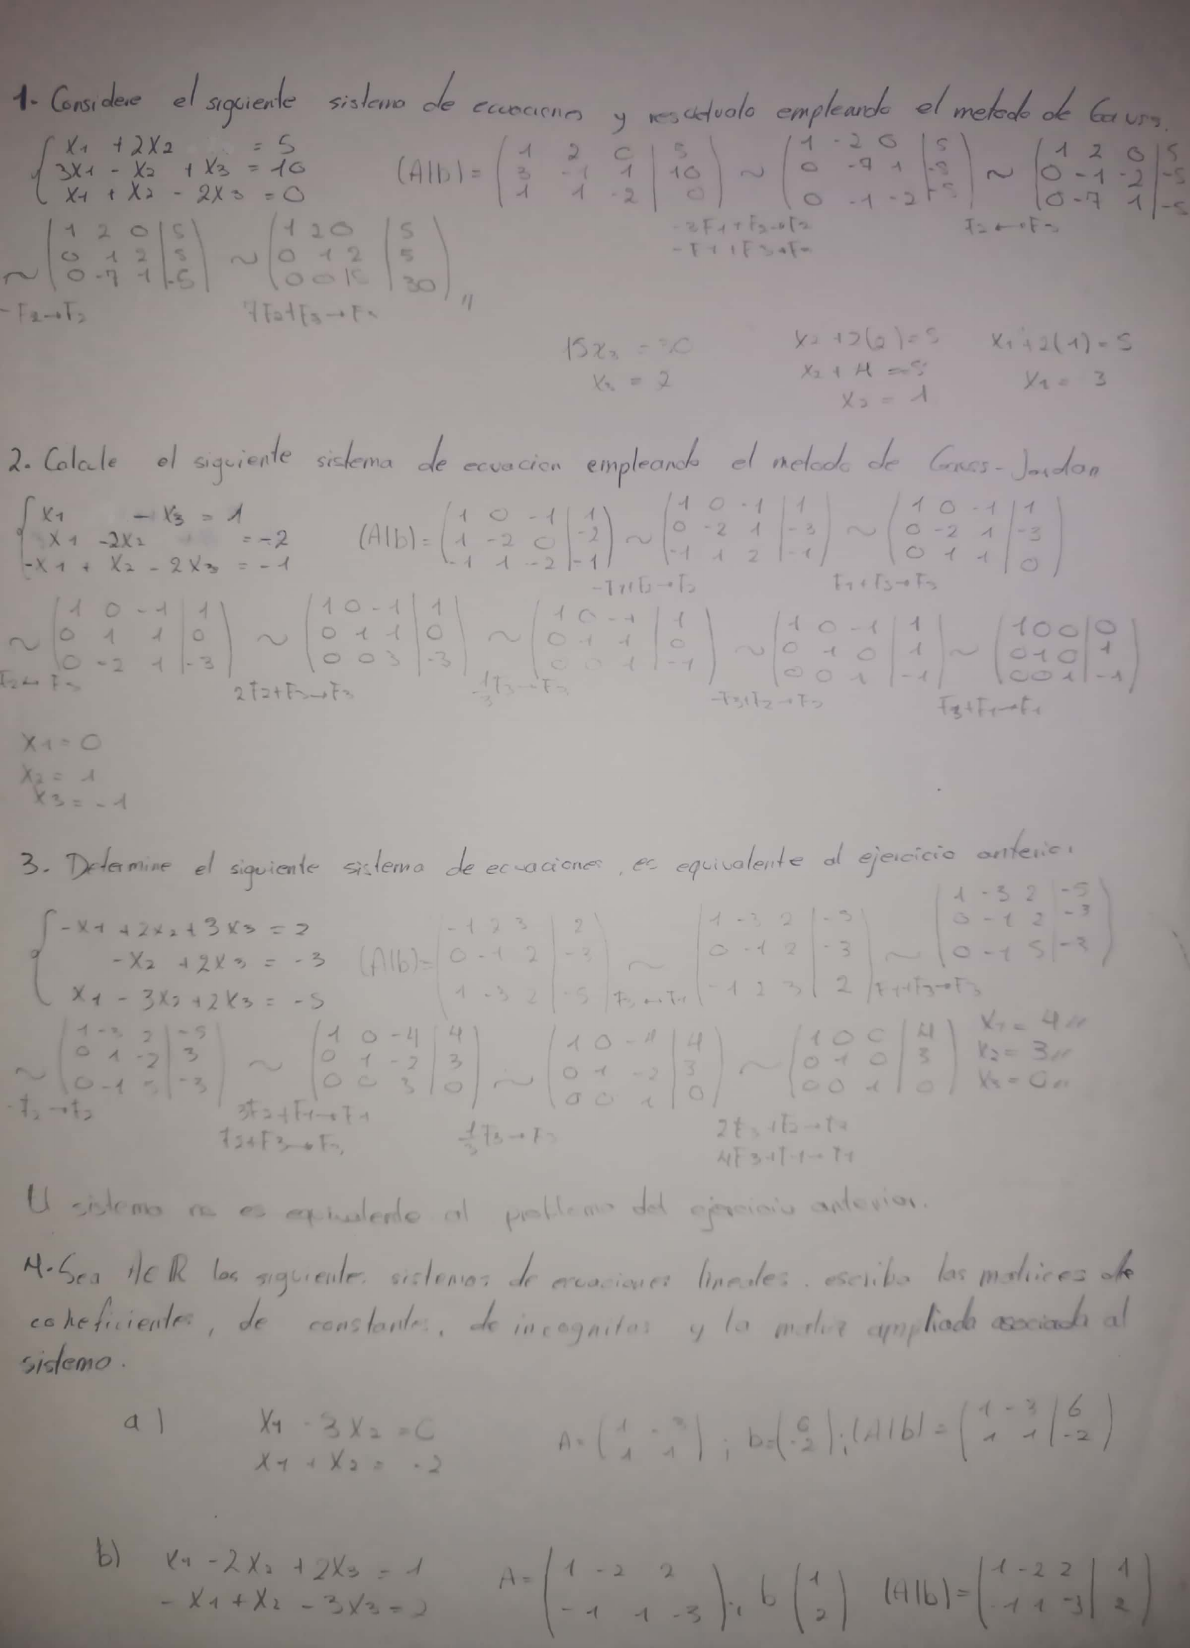 1. Considere el siguiente sistema de ecuaciones y resuelvalo empleando el metodo de Gauss.
x1 + 2x2 = 5
3x1 - x2 + x3 = 10
x1 + x2 - 2x3 = 0
(A|b) = (1 2 0 | 5; 3 -1 1 | 10; 1 1 -2 | 0) ~ (1 -2 0 | 5; 0 -7 1 | -5; 0 -1 -2 | -5) ~ (1 2 0 | 5; 0 -1 -2 | -5; 0 -7 1 | -5)
-3F1+F2→F2 F2↔F3
~ (1 2 0 | 5; 0 1 2 | 5; 0 -7 1 | -5) ~ (1 2 0 | 5; 0 1 2 | 5; 0 0 15 | 30) //
-F2→F2 7F2+F3→F3
15x3 = 30 x2 + 2(2) = 5 x1 + 2(1) = 5
x3 = 2 x2 + 4 = 5 x1 = 3
x2 = 1
2. Calcule el siguiente sistema de ecuacion empleando el metodo de Gauss-Jordan
x1 - x3 = 1
x1 - 2x2 = -2
-x1 + x2 - 2x3 = -1
(A|b) = (1 0 -1 | 1; 1 -2 0 | -2; -1 1 -2 | -1) ~ (1 0 -1 | 1; 0 -2 1 | -3; -1 1 2 | -1) ~ (1 0 -1 | 1; 0 -2 1 | -3; 0 1 1 | 0)
-F1+F2→F2 F1+F3→F3
~ (1 0 -1 | 1; 0 1 1 | 0; 0 -2 1 | -3) ~ (1 0 -1 | 1; 0 1 1 | 0; 0 0 3 | -3) ~ (1 0 -1 | 1; 0 1 1 | 0; 0 0 1 | -1) ~ (1 0 -1 | 1; 0 1 0 | 1; 0 0 1 | -1) ~ (1 0 0 | 0; 0 1 0 | 1; 0 0 1 | -1)
F2↔F3 2F2+F3→F3 1/3F3→F3 -F3+F2→F2 F3+F1→F1
x1 = 0
x2 = 1
x3 = -1
3. Determine el siguiente sistema de ecuaciones, es equivalente al ejercicio anterior
-x1 + 2x2 + 3x3 = 2
-x2 + 2x3 = -3
x1 - 3x2 + 2x3 = -5
(A|b) = (-1 2 3 | 2; 0 -1 2 | -3; 1 -3 2 | -5) ~ (1 -3 2 | -5; 0 -1 2 | -3; -1 2 3 | 2) ~ (1 -3 2 | -5; 0 -1 2 | -3; 0 -1 5 | -3)
F3↔F1 F1+F3→F3
~ (1 -3 2 | -5; 0 1 -2 | 3; 0 -1 5 | -3) ~ (1 0 -4 | 4; 0 1 -2 | 3; 0 0 3 | 0) ~ (1 0 -4 | 4; 0 1 -2 | 3; 0 0 1 | 0) ~ (1 0 0 | 4; 0 1 0 | 3; 0 0 1 | 0)
x1 = 4//
x2 = 3//
x3 = 0//
-F2→F2 3F2+F1→F1 1/3F3→F3
F2+F3→F3 4F3+F1→F1
U sistema no es equivalente al problema del ejercicio anterior.
4. Sea los siguientes sistemas de ecuaciones lineales. escriba las matrices de
coheficientes, de constantes, de incognitas y la matriz ampliada asociada al
sistema.
a) x1 - 3x2 = 6
x1 + x2 = -2
A = (1 -3; 1 1) ; b = (6; -2) ; (A|b) = (1 -3 | 6; 1 1 | -2)
b) x1 - 2x2 + 2x3 = 1
-x1 + x2 - 3x3 = 2
A = (1 -2 2; -1 1 -3) ; b (1; 2) (A|b) = (1 -2 2 | 1; -1 1 -3 | 2)